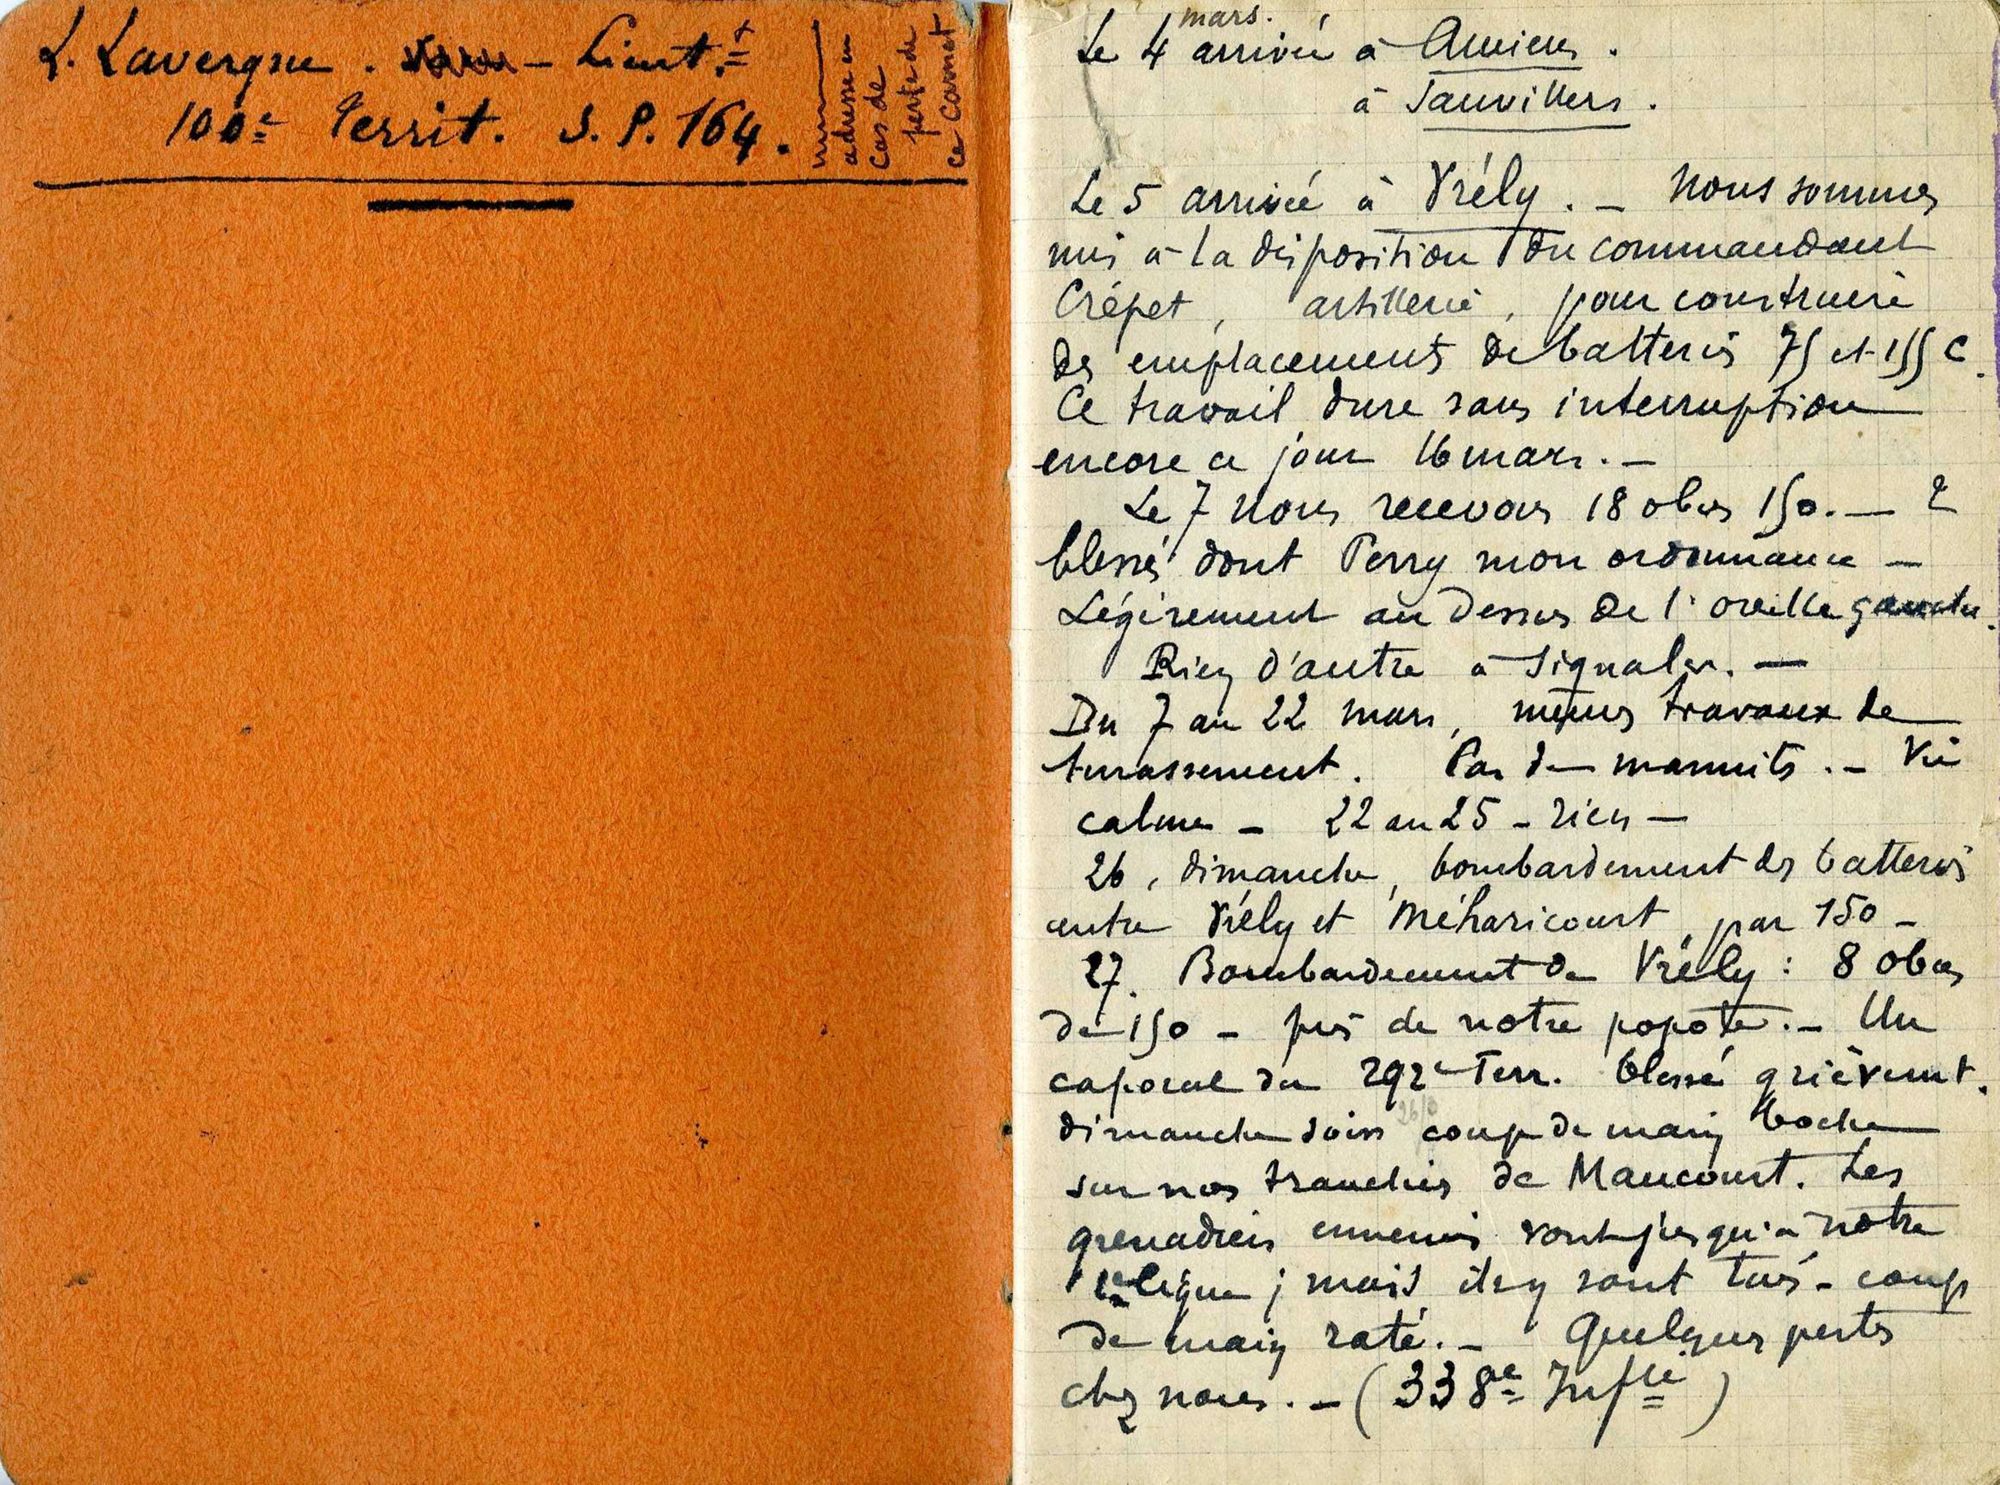 L. Lavergne. — Lieut.t
100e Territ. S. P. 164.
adresse en
cas de
perte de
ce carnet
mars.
Le 4 arrivée à Amiens.
à Sauvillers.
Le 5 arrivée à Vrély. — Nous sommes
mis à la disposition du commandant
Crépet, artillerie, pour construire
des emplacements de batteries 75 et 155 C.
Ce travail dure sans interruption
encore ce jour 16 mars. —
Le 7 nous recevons 18 obus 150. — 2
blessés dont Perry mon ordonnance —
Légèrement au dessus de l'oreille gauche.
Rien d'autre à signaler. —
Du 7 au 22 mars, mêmes travaux de
terrassement. Pas de marmites. — Vie
calme — 22 au 25 — rien —
26, dimanche, bombardement des batteries
entre Vrély et Méharicourt, par 150 —
27. Bombardement de Vrély : 8 obus
de 150 — près de notre popote. — Un
caporal du 292e Terr. blessé grièvemt.
dimanche soir coup de main boche
sur nos tranchées de Maucourt. Les
grenadiers ennemis vont jusqu'à notre
1e ligne ; mais ils y sont tués — coup
de main raté. — Quelques pertes
chez nous. — (338e Inf.ie)